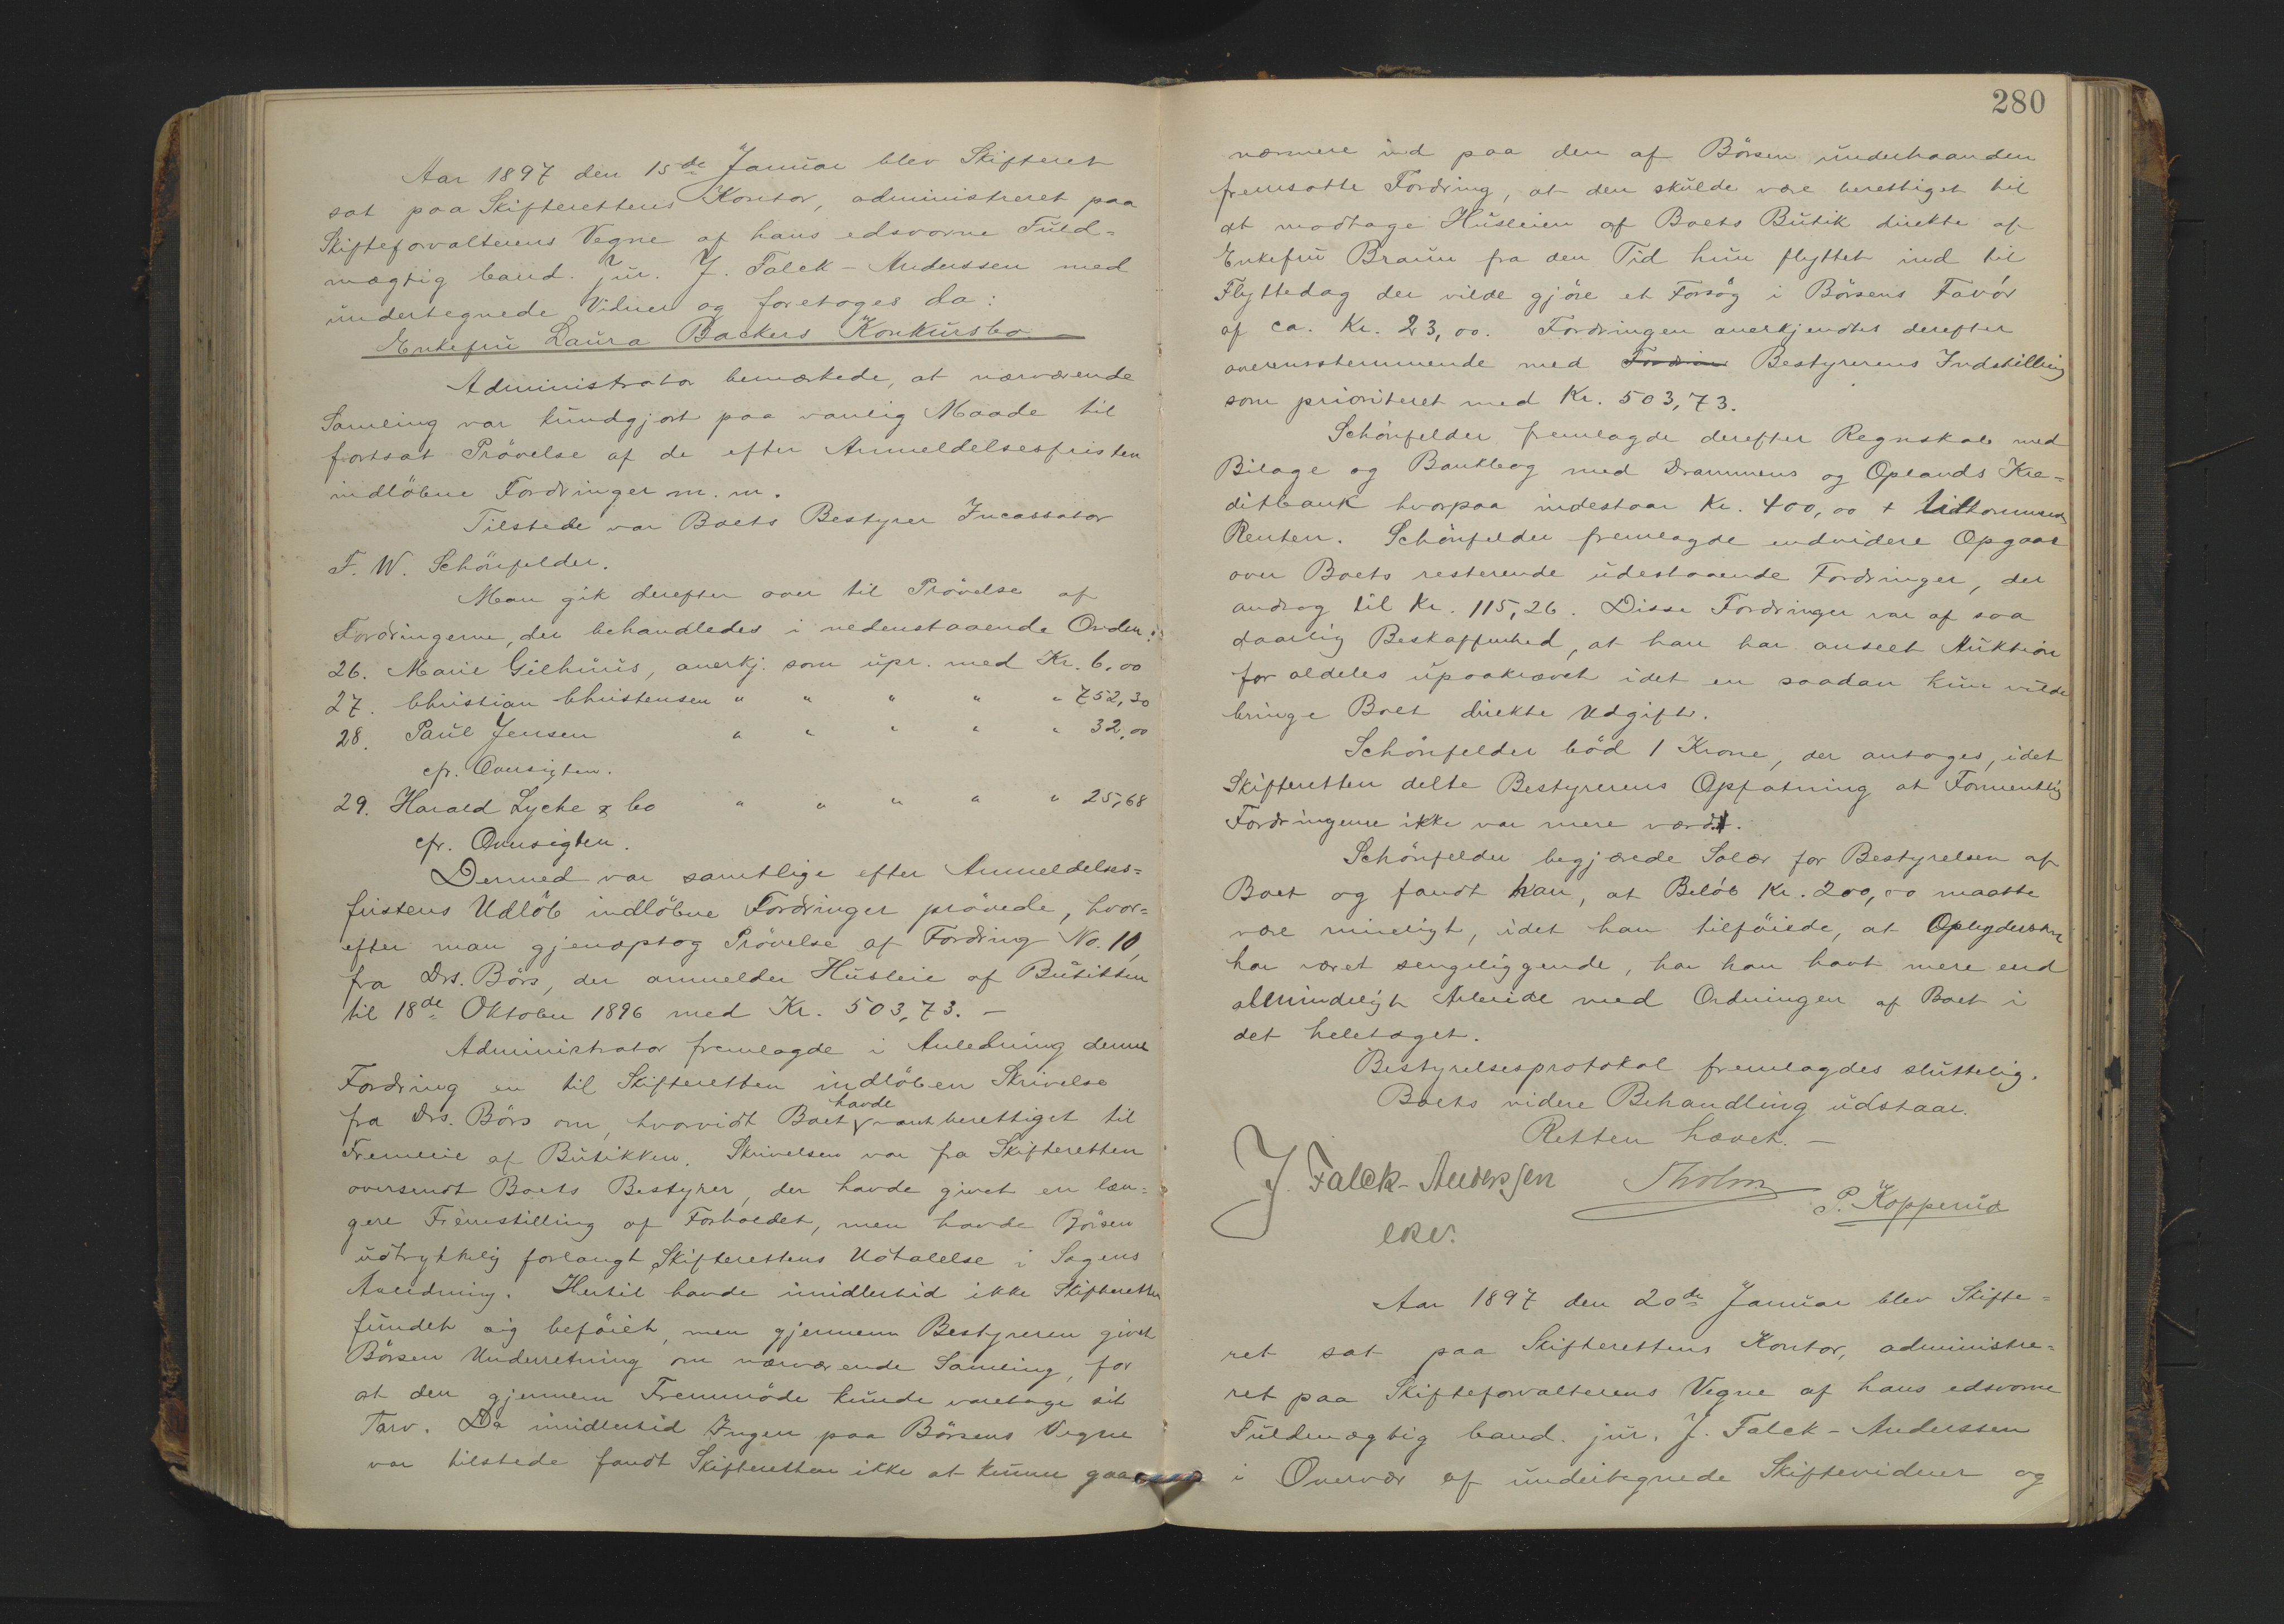 Aar 1897 den 15de Januar blev Skifteret
sat paa Skifterettens Kontor, administreret paa
Skifteforvalterens Vegne af hans edsvorne Fuld=
mægtig Cand. jur. J. Falck-Anderssen med
undertegnede Vidner og foretoges da:
Enkefru Laura Backers Konkursbo.
Administrator bemærkede, at nærværende
Samling var kundgjort paa vanlig Maade til
fortsat Prövelse af de efter Anmeldelsesfristen
indlöbne Fordringer m. m.
Tilstede var Boets Bestyrer Incassator
F. W. Schönfelder.
Man gik derefter over til Prövelse af
Fordringerne, der behandledes i nedenstaaende Orden:
26. Marie Gilhuus, anerkj. som upr. med Kr. 6,00
27. Christian Christensen " " " " " 752,30
28. Paul Jensen " " " " " 32,00
cfr. Oversigten.
29. Harald Lyche & Co " " " " " 25,68
cfr. Oversigten.
Dermed var samtlige efter Anmeldelses=
fristens Udlöb indlöbne Fordringer prövede, hvor=
efter man gjenoptog Prövelse af Fordring No. 10,
fra Drs. Börs, der anmelder Husleie af Butikken
til 18de Oktober 1896 med Kr. 503,73. —
Administrator fremlagde i Anledning denne
Fordring en til Skifteretten indlöben Skrivelse
fra Drs. Börs om, hvorvidt Boet havde været berettiget til
Fremleie af Butikken. Skrivelsen var fra Skifteretten
oversendt Boets Bestyrer, der havde givet en læn=
gere Fremstilling af Forholdet, men havde Börsen
udtrykkelig forlangt Skifterettens Udtalelse i Sagens
Anledning. Hertil havde imidlertid ikke Skifteretten
fundet sig beföiet, men gjennem Bestyreren givet
Börsen Underretning om nærværende Samling, for
at den gjennem Fremmöde kunde varetage sit
Tarv. Da imidlertid Ingen paa Börsens Vegne
var tilstede fandt Skifteretten ikke at kunne gaa
280
nærmere ind paa den af Börsen underhaanden
fremsatte Fordring, at den skulde være berettiget til
at modtage Husleien af Boets Butik direkte af
Enkefru Braun fra den Tid hun flyttet ind til
Flyttedag der vilde gjöre et Forsög i Börsens Favör
af ca. Kr. 23,00. Fordringen anerkjendtes derefter
overensstemmende med Fordrin Bestyrerens Indstilling
som prioriteret med Kr. 503,73.
Schönfelder fremlagde derefter Regnskab med
Bilage og Bankbog med Drammens og Oplands Kre=
ditbank hvorpaa indestaar Kr. 400,00 +
Renter. Schönfelder fremlagde endvidere Opgave
over Boets resterende udestaaende Fordringer, der
androg til Kr. 115,26. Disse Fordringer var af saa
daarlig Beskaffenhed, at han har anseet Auktion
for aldeles upaakrævet idet en saadan kun vilde
bringe Boet direkte Udgifter.
Schönfelder böd 1 Krone, der antoges, idet
Skifteretten delte Bestyrerens Opfatning at Formentlig
Fordringerne ikke var mere værdt.
Schönfelder begjærede Salær for Bestyrelsen af
Boet og fandt han, at Belöb Kr. 200,00 maatte
være rimeligt, idet han tilföiede, at
har været sengeliggende, har han havt mere end
almindeligt Arbeide med Ordningen af Boet i
det heletaget.
Bestyrelsesprotokol fremlagdes sluttelig.
Boets videre Behandling udstaar.
Retten hævet. —
J. Falck-Anderssen Tholm P. Kopperud
edsv.
Aar 1897 den 20de Januar blev Skifte=
ret sat paa Skifterettens Kontor, administre=
ret paa Skifteforvalterens Vegne af hans edsvorne
Fuldmægtig Cand. jur. J. Falck-Anderssen
i Overvær af undertegnede Skiftevidner og